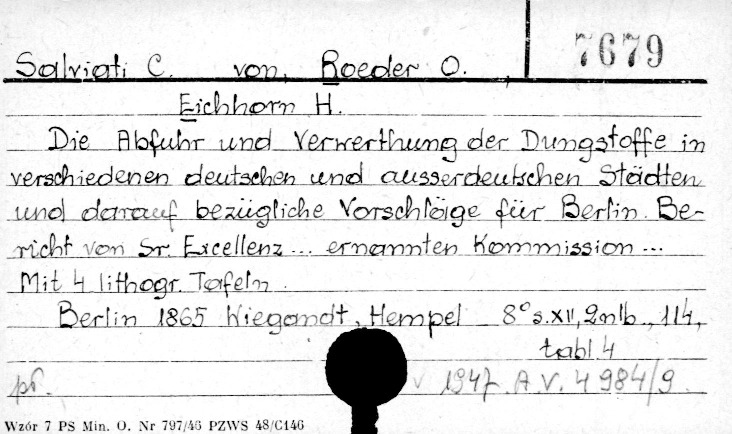 7679
Salviati C. von, Roeder O.
Eichhorn H.
Die Abfuhr und Verwerthung der Dungstoffe in
verschiedenen deutschen und ausserdeutschen Städten
und darauf bezügliche Vorschläge für Berlin. Be-
richt von Sr. Excellenz ... ernannten Kommission ...
Mit 4 lithogr. Tafeln.
Berlin 1865 Wiegandt, Hempel 8° s. XII, 2nlb., 114,
tabl. 4
př. V 1947. A V. 4 984/9
Wzór 7 PS Min. O. Nr 797/46 PZWS 48/C146